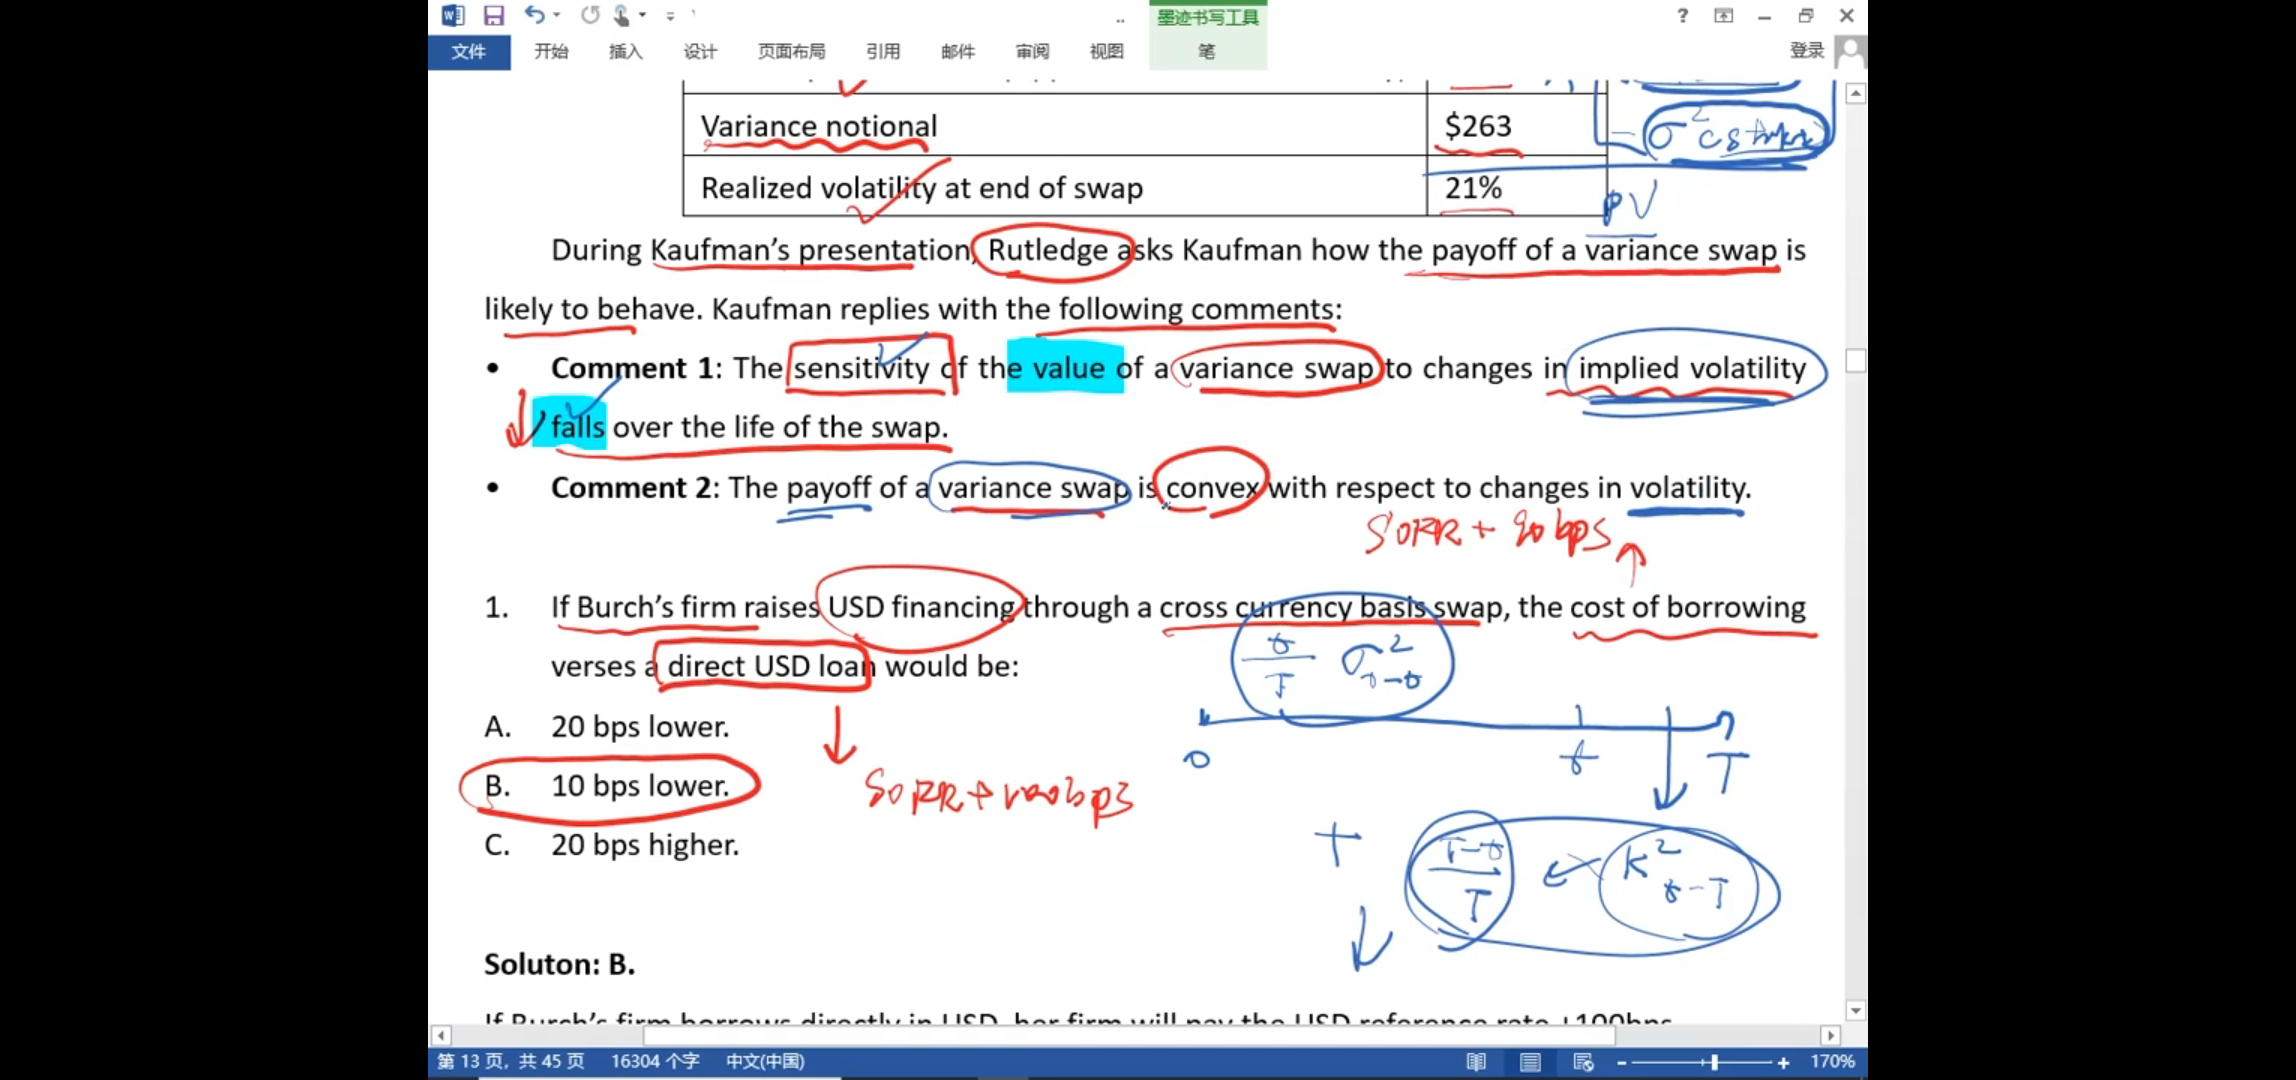 墨迹书写工具
文件 开始 插入 设计 页面布局 引用 邮件 审阅 视图 笔 登录
Variance notional $263
σ²
Realized volatility at end of swap 21%
PV
During Kaufman’s presentation, Rutledge asks Kaufman how the payoff of a variance swap is
likely to behave. Kaufman replies with the following comments:
• Comment 1: The sensitivity of the value of a variance swap to changes in implied volatility
falls over the life of the swap.
• Comment 2: The payoff of a variance swap is convex with respect to changes in volatility.
SOFR + 90 bps
1. If Burch’s firm raises USD financing through a cross currency basis swap, the cost of borrowing
verses a direct USD loan would be:
t/T σ² 0-t
A. 20 bps lower.
0 t T
B. 10 bps lower.
SOFR + 100bps
C. 20 bps higher.
+ T-t/T K² t-T
Soluton: B.
If Burch’s firm borrows directly in USD, her firm will pay the USD reference rate +100bps
第 13 页，共 45 页 16304 个字 中文(中国) 170%